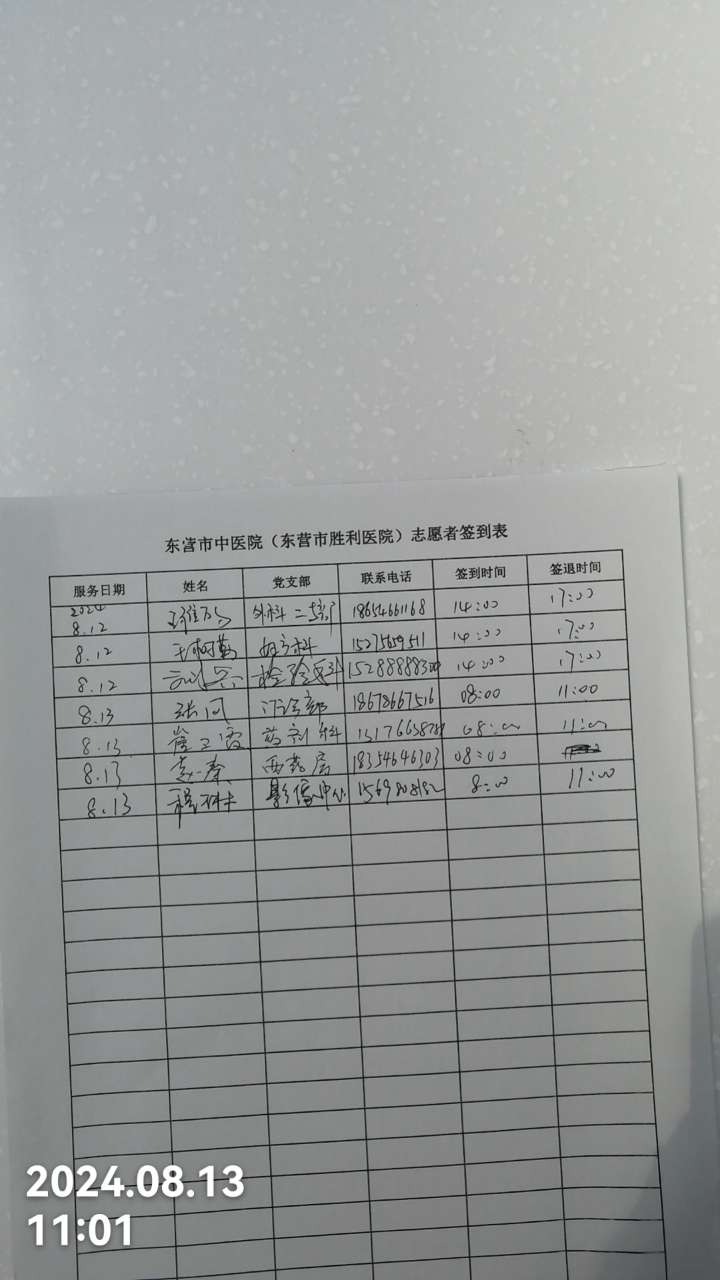 东营市中医院（东营市胜利医院）志愿者签到表
服务日期 姓名 党支部 联系电话 签到时间 签退时间
2024
8.12 外科二 18654661168 14:00 17:00
8.12 科 15275659511 14:00 17:00
8.12 检验 14:00 17:00
8.13 张 门诊部 18678667516 08:00 11:00
8.13 崔 药剂科 08:00 11:00
8.13 西药房 18354646303 08:00
8.13 程 影像中心 8:00 11:00
2024.08.13
11:01